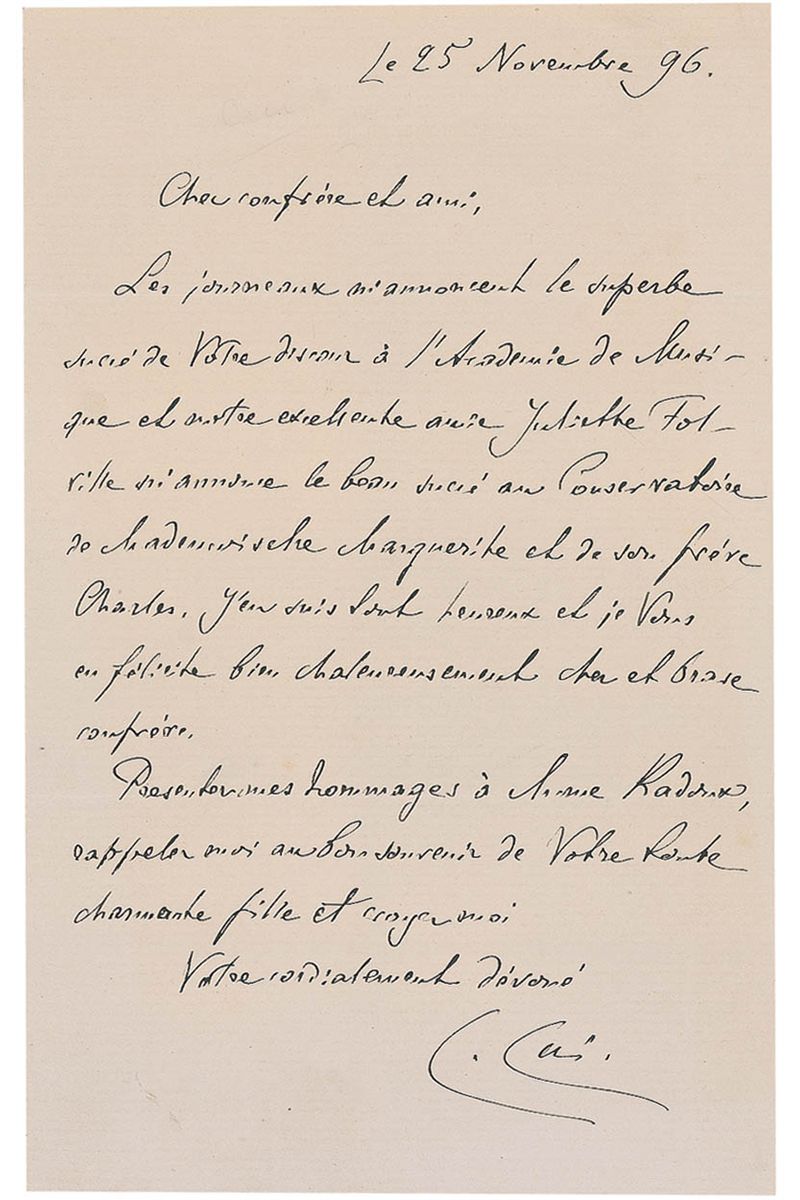 Le 25 Novembre 96.
Cher confrére et ami,
Les journeaux m'annoncent le superbe
succé de Votre discour à l'Academie de Musi-
que et notre excellente amie Juliette Fol-
ville m'annonce le beau succé au Conservatoire
de Mademoiselle Marguerite et de son frére
Charles. J'en suis tout heureux et je Vous
en félicite bien chaleureusement cher et brave
confrére.
Presenter mes hommages à Mme Radoux,
rappeler moi au bon souvenir de Votre toute
charmante fille et croyer moi
Votre cordialement dévoué
C. Cui.